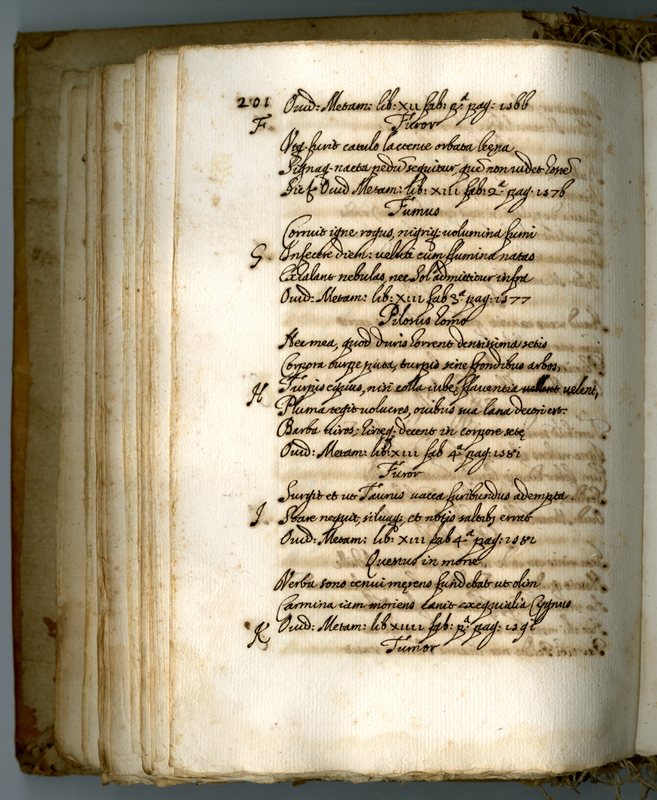 201 Ouid: Metam: lib: XII fab: pª pag: 1566
F Furor
Vtq; furit catulo lactente orbata leęna
Signaq. nacta pedū sequitur, quē non uidet hostē
Sic Ouid Metam: lib: XIII fab: 2ª pag: 1576
Fumus
Corruit igne rogus, nigriq; uolumina fumi
G Infecere diem: ueluti cum flumina natas
Exalant nebulas, nec Sol admittitur infra
Ouid: Metam: lib: XIII fab 3ª pag: 1577
Pilosus homo
Nec mea, quod duris horrent densissima setis
Corpora turpe puta, turpis sine frondibus arbos,
H Turpis equus, nisi colla iubę; flauentia uelent,
Pluma tegit uolucres, ouibus sua lana decori est.
Barba uiros; hirtęq. decent in corpore setę
Ouid: Metam: lib: XIII fab 4ª pag: 1581
Furor
Surgit et ut Taurus uacca furibundus adempta
I Stare nequit, siluaq; et notis saltib; errat
Ouid: Metam: lib: XIII fab 4ª pag: 1581
Questus in morte
Verba sono tenui męrens fundebat ut olim
Carmina iam moriens canit exequialia Cygnus
K Ouid: Metam: lib XIIII fab: pª pag: 1591
Tumor